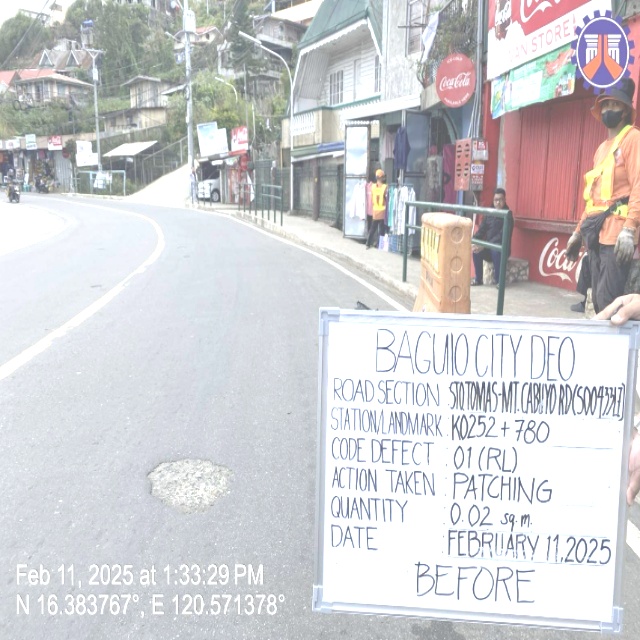 Coca-Cola
Coca-Cola
Coca-Cola
BAGUIO CITY DEO
ROAD SECTION STO TOMAS-MT. CABUYO RD
STATION/LANDMARK K0252+780
CODE DEFECT : 01 (RL)
ACTION TAKEN : PATCHING
QUANTITY : 0.02 sq.m.
DATE : FEBRUARY 11, 2025
BEFORE
Feb 11, 2025 at 1:33:29 PM
N 16.383767°, E 120.571378°